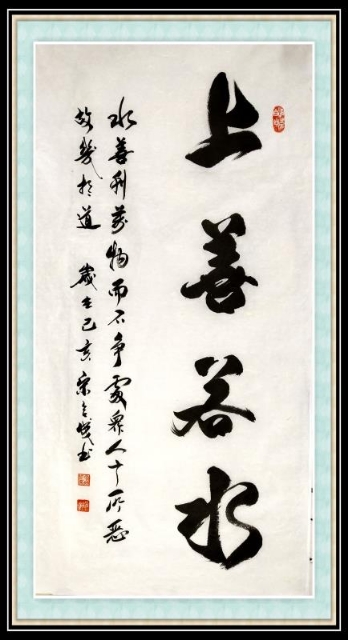 上善若水
水善利萬物而不争處衆人之所惡
故幾於道 歲在己亥宋書